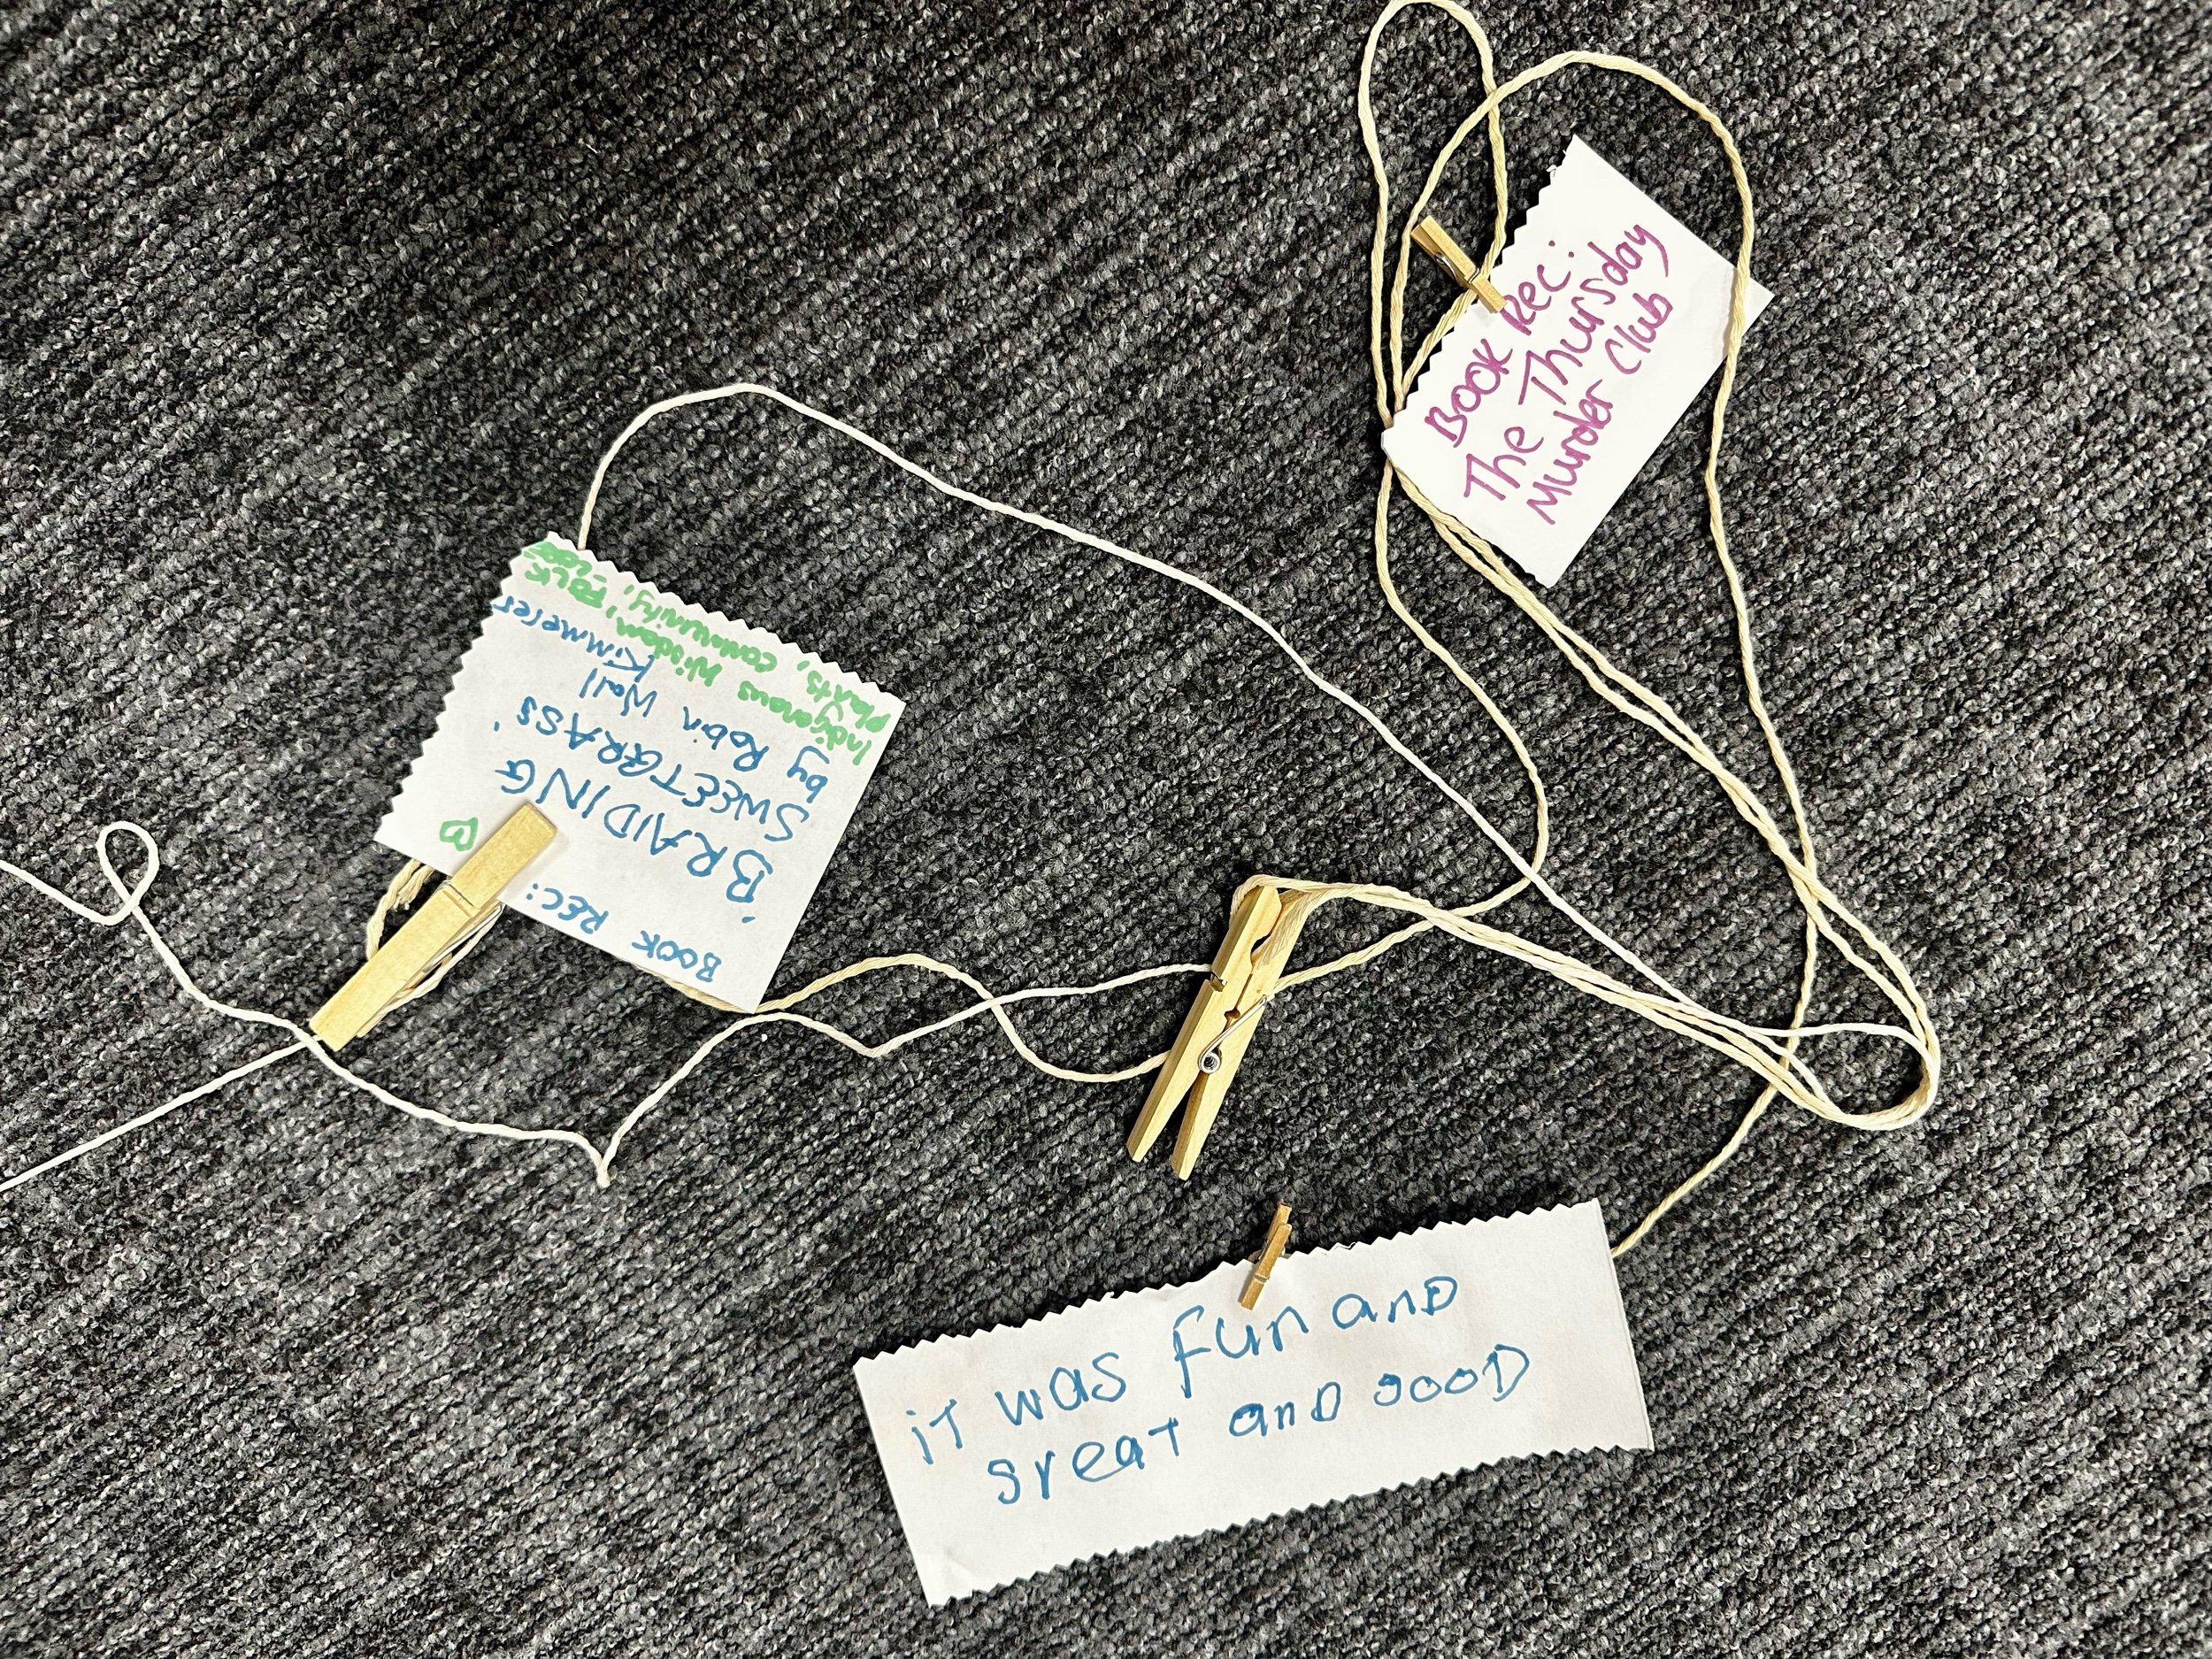 Book Rec:
The Thursday
Murder Club
BOOK REC:
'BRAIDING
SWEETGRASS'
by Robin Wall
Kimmerer
Indigenous Wisdom,
Plants, Community, FOLK
it was fun and
great and good